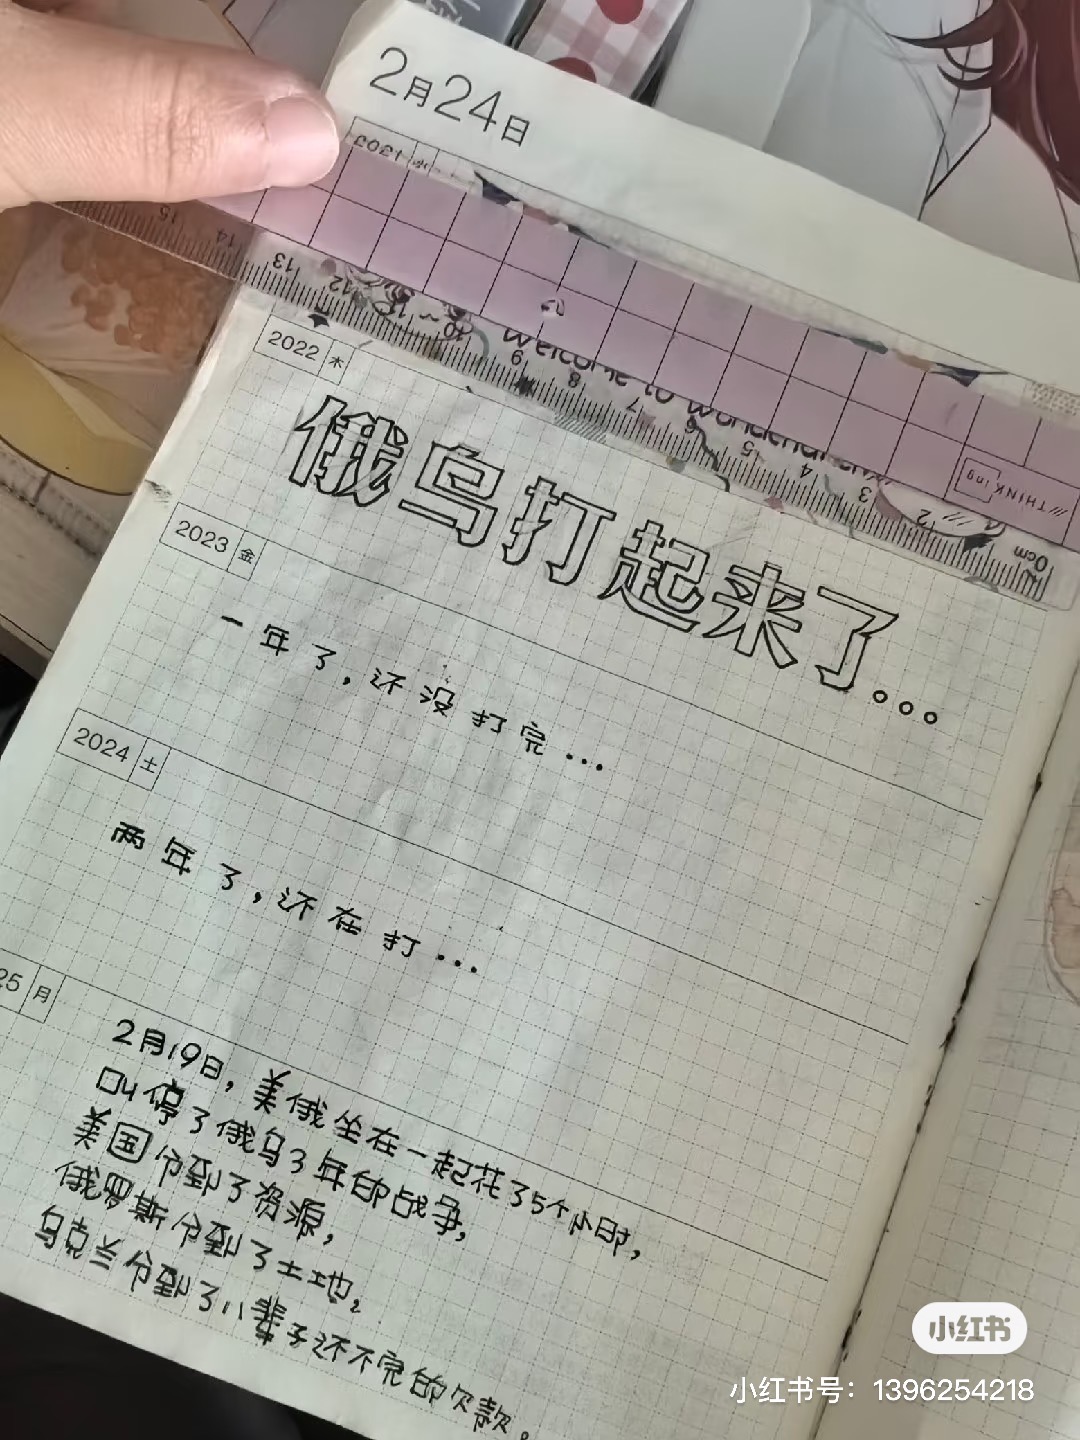 2月24日
2021 水
15 14 13 12 11 10 9 8 7 6 5 4 3 2 1 0cm
Welcome to wonderland
///THINKing
2022 木
俄乌打起来了...
2023 金
一年了，还没打完...
2024 土
两年了，还在打...
25 月
2月19日，美俄坐在一起花了5个小时，
叫停了俄乌3年的战争，
美国分到了资源，
俄罗斯分到了土地。
乌克兰分到了八辈子还不完的欠款。
小红书
小红书号：1396254218